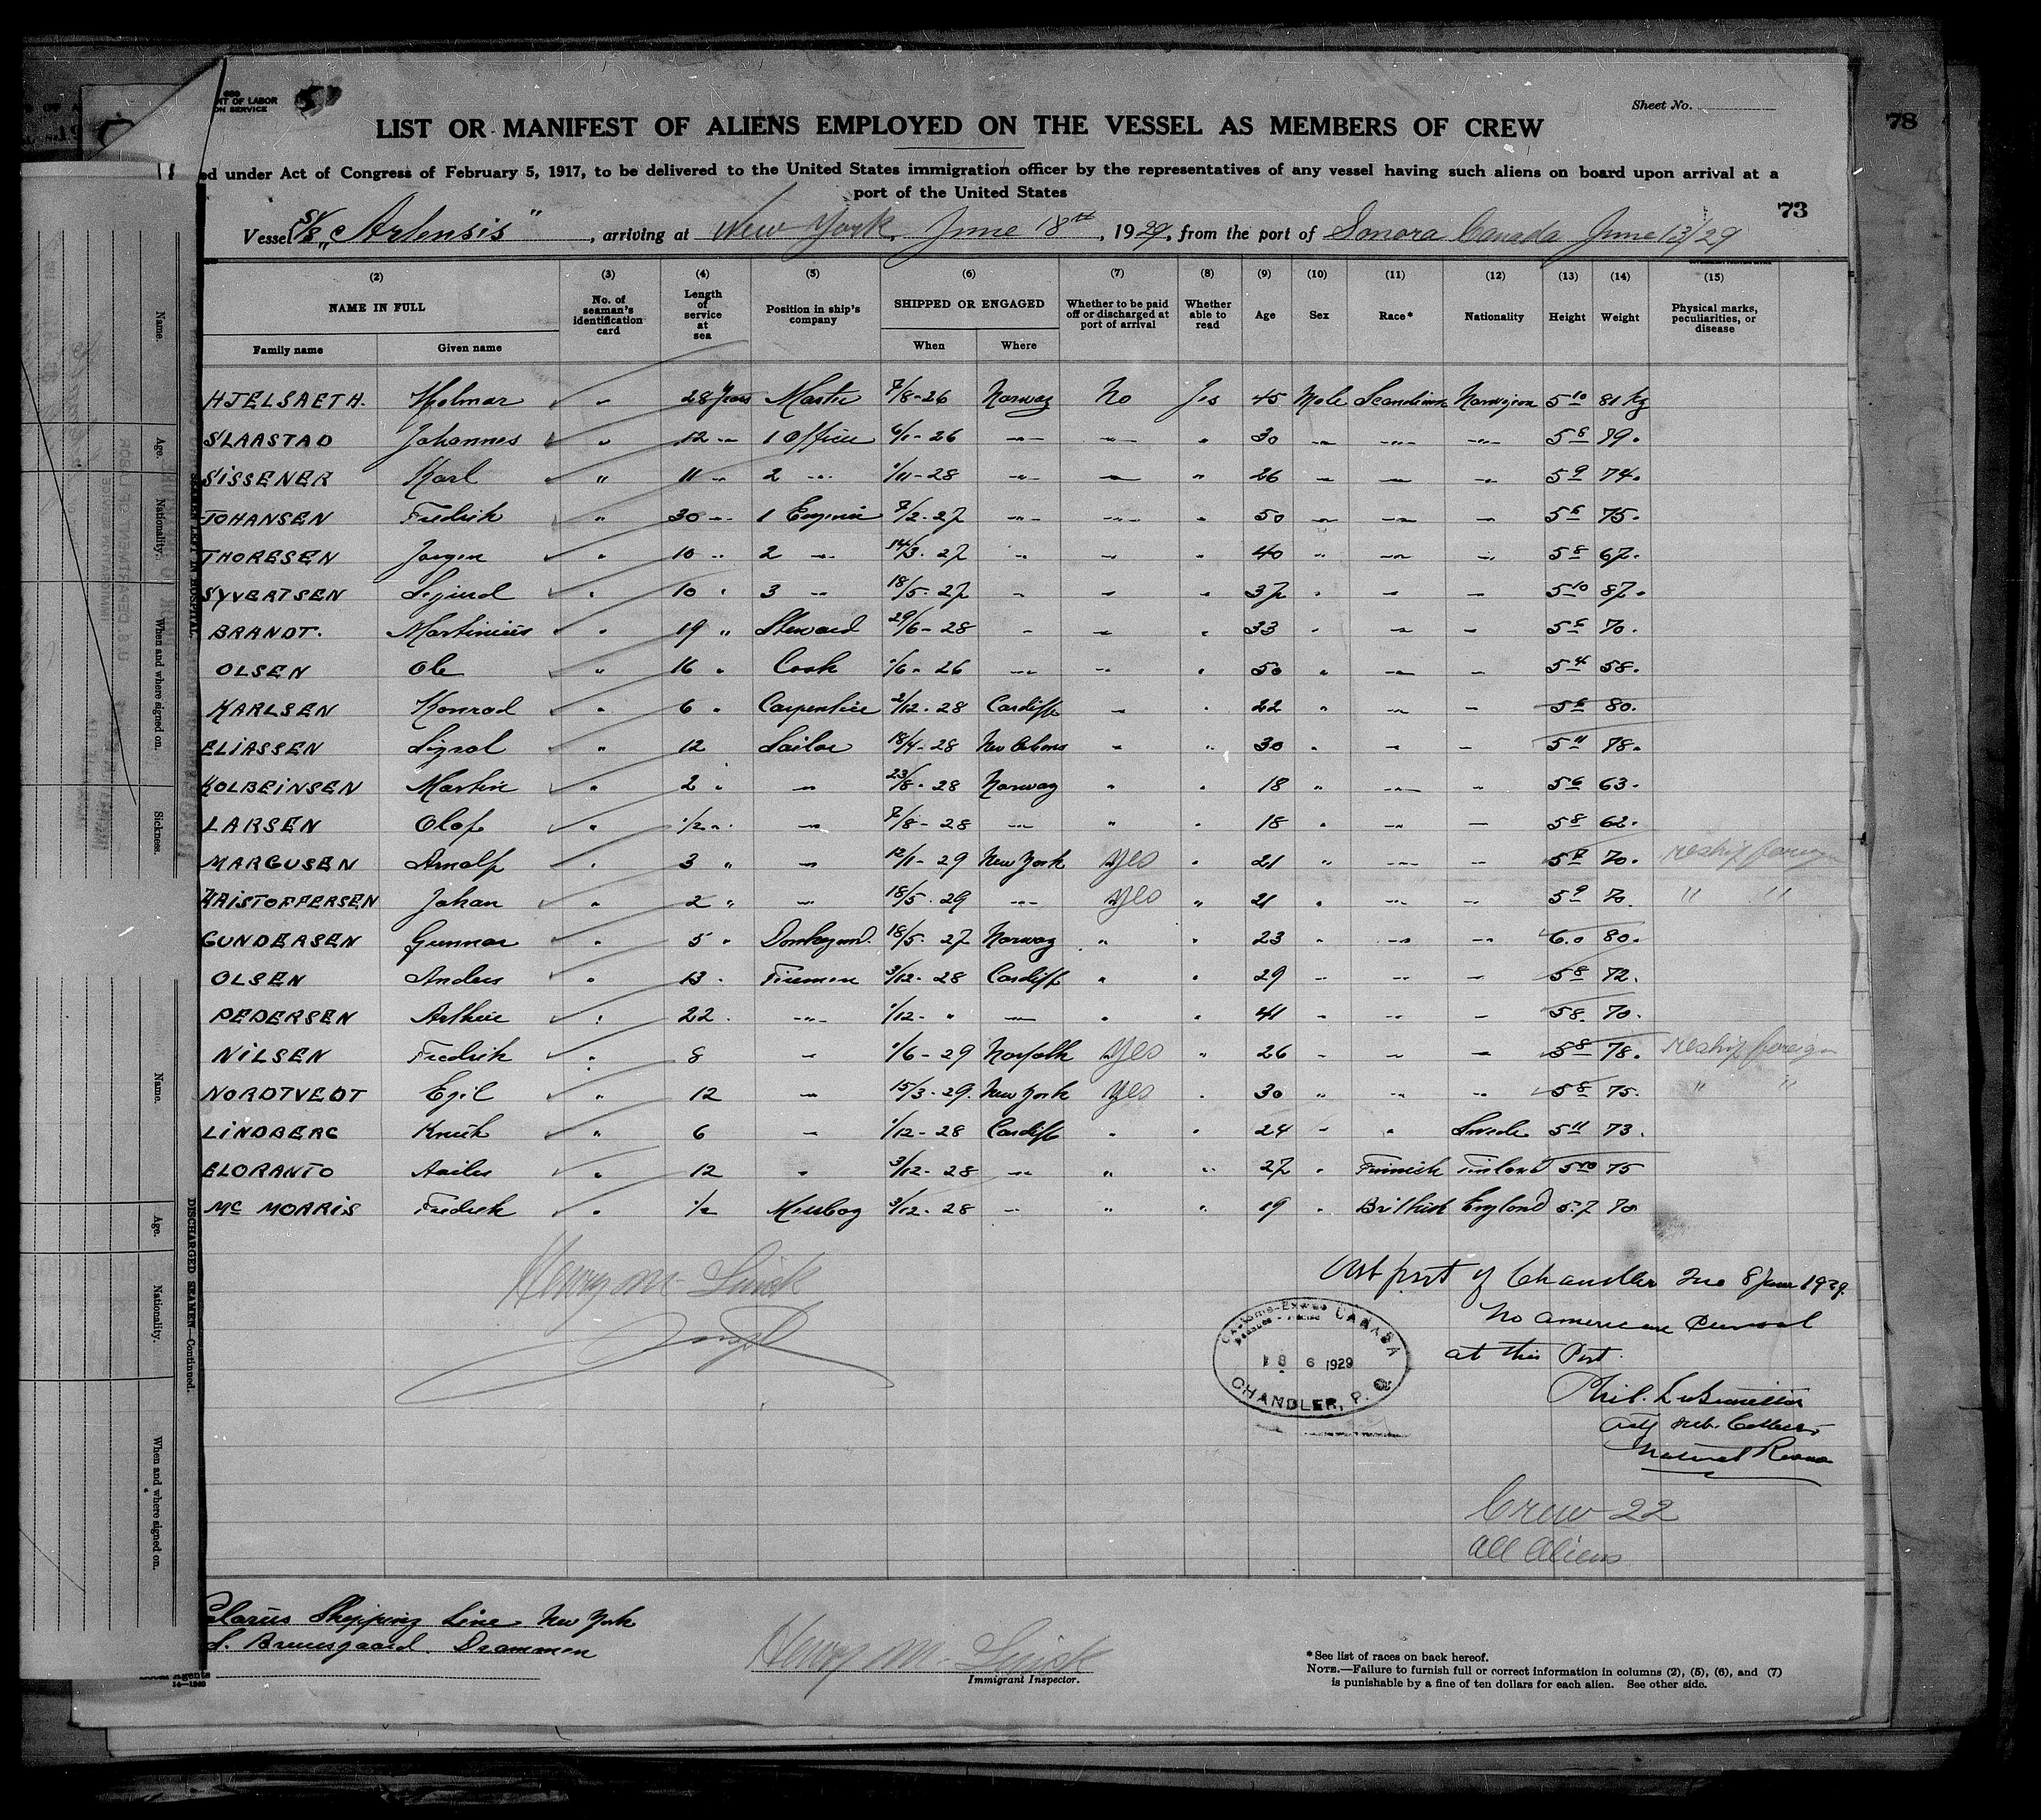 NT OF LABOR
ON SERVICE
Sheet No.
LIST OR MANIFEST OF ALIENS EMPLOYED ON THE VESSEL AS MEMBERS OF CREW
78
ed under Act of Congress of February 5, 1917, to be delivered to the United States immigration officer by the representatives of any vessel having such aliens on board upon arrival at a
port of the United States
73
Vessel S/S "Artensis", arriving at New York, June 18th, 1929, from the port of Sonora Canada June 13/29
(2) (3) (4) (5) (6) (7) (8) (9) (10) (11) (12) (13) (14) (15)
NAME IN FULL No. of seaman's identification card Length of service at sea Position in ship's company SHIPPED OR ENGAGED Whether to be paid off or discharged at port of arrival Whether able to read Age Sex Race* Nationality Height Weight Physical marks, peculiarities, or disease
Family name Given name When Where
HJELSAETH. Hjalmar " 28 Years Master 7/8-26 Norway No Yes 45 Male Scandinav Norwegian 5 10 81 Kg
SLAASTAD Johannes " 12 " 1 Officer 6/1-26 " " " 30 " " " 5 8 79.
SISSENER Karl " 11 " 2 " 1/11-28 " " " 26 " " " 5 9 74.
JOHANSEN Fredrik " 30 " 1 Engineer 7/2-27 " " " 50 " " " 5 6 75.
THORESEN Jorgen " 10 " 2 " 14/3-27 " " " 40 " " " 5 8 67.
SYVERTSEN Sigurd " 10 " 3 " 18/5-27 " " " 37 " " " 5 10 87.
BRANDT. Martinius " 19 " Steward 29/6-28 " " " 33 " " " 5 6 70.
OLSEN Ole " 16 " Cook 1/6-26 " " " 50 " " " 5 4 58.
KARLSEN Konrad " 6 " Carpenter 2/12-28 Cardiff " " 22 " " " 5 6 80.
ELIASSEN " 12 Sailor 18/4-28 New Orleans " " 30 " " " 5 11 78.
KOLBEINSEN Martin " 2 " " 23/8-28 Norway " " 18 " " " 5 6 63.
LARSEN Olaf " 1/2 " " 7/8-28 " " " 18 " " " 5 8 62.
MARGUSEN Arnolf " 3 " " 12/1-29 New York Yes " 21 " " " 70. reship foreign
KRISTOFFERSEN Johan " 2 " " 18/5-29 " Yes " 21 " " " 5 9 70. " "
GUNDERSEN Gunnar " 5 " Donkeymd. 18/5-27 Norway " " 23 " " " 6.0 80.
OLSEN Anders " 13 " Firemen 3/12-28 Cardiff " " 29 " " " 5 8 72.
PEDERSEN Arthur " 22 " " 1/12- " " " " 41 " " " 5 8 70.
NILSEN Fredrik " 8 " 1/6-29 Norfolk Yes " 26 " " " 5 8 78. reship foreign
NORDTVEDT Egil " 12 " 15/3-29. New York Yes " 30 " " " 5 8 75. " "
LINDBERG Knut " 6 " 1/12-28 Cardiff " " 24 " " Swede 5 11 73.
ELORANTO " 12 " 3/12-28 " " " 27 " Finnish Finland 5 10 75
Mc MORRIS Fredrik " 1/2 Messboy 3/12-28 " " " 19 " British England 5.7 70
Henry M.
At port of Chandler Que 8 June 1929.
No american Consul
at this Port.
CANADA
8 6 1929
CHANDLER, P. Q.
Sub. Collector
National Revenue
Crew 22
all Aliens
Shipping Line New York
Bruusgaard. Drammen
Agents
Henry M.
Immigrant Inspector.
*See list of races on back hereof.
NOTE.—Failure to furnish full or correct information in columns (2), (5), (6), and (7)
is punishable by a fine of ten dollars for each alien. See other side.
Name.
Age.
Nationality.
When and where signed on.
Sickness.
DISCHARGED SEAMEN—Continued.
Name.
Age.
Nationality.
When and where signed on.
U.S. DEPARTMENT OF LABOR
IMMIGRATION SERVICE